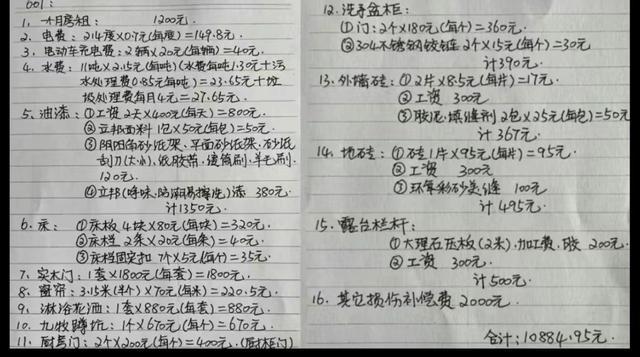 601:
1. 一个月房租: 1200元.
2. 电费: 214度×0.7元(每度)=149.8元.
3. 电动车充电费: 2辆×20元(每辆)=40元.
4. 水费: 11吨×2.15元(每吨)(水费每吨1.30元+污
水处理费0.85元每吨)=23.65元+垃
圾处理费每月4元=27.65元.
5. 油漆: ①工资 2天×400元(每天)=800元.
②立邦面料 1包×50元(每包)=50元.
③阴阳角砂纸架、平面砂纸架、砂纸
刮刀(大小)、纸胶带、滚筒刷、羊毛刷.
120元.
④立邦(呼吸,防潮易擦洗)漆 380元.
计1350元.
6. 床: ①床板 4块×80元(每块)=320元.
②床栏 2条×20元(每条)=40元.
③床栏固定扣 7个×5元(每个)=35元.
7. 实木门: 1套×1800元(每套)=1800元.
8. 窗帘: 3.15米(半个)×70元(每米)=220.5元.
9. 淋浴花洒: 1套×880元(每套)=880元.
10. 九牧蹲坑: 1个×670元(每个)=670元.
11. 厨房门: 2个×200元(每个)=400元.(厨柜门)
12. 洗手盆柜:
①门: 2个×180元(每个)=360元.
②304不锈钢铰链 2个×15元(每个)=30元
计390元.
13. 外墙砖: ①2片×8.5元(每片)=17元.
②工资 300元
③胶泥、填缝剂 2包×25元(每包)=50元
计 367元.
14. 地砖: ①砖 1片×95元(每片)=95元.
②工资 300元
③环氧彩砂美缝 100元
计 495元.
15. 露台栏杆:
①大理石压板(2米).加工费.胶 200元.
②工资 300元.
计500元.
16. 其它损伤补偿费 2000元.
合计: 10884.95元.